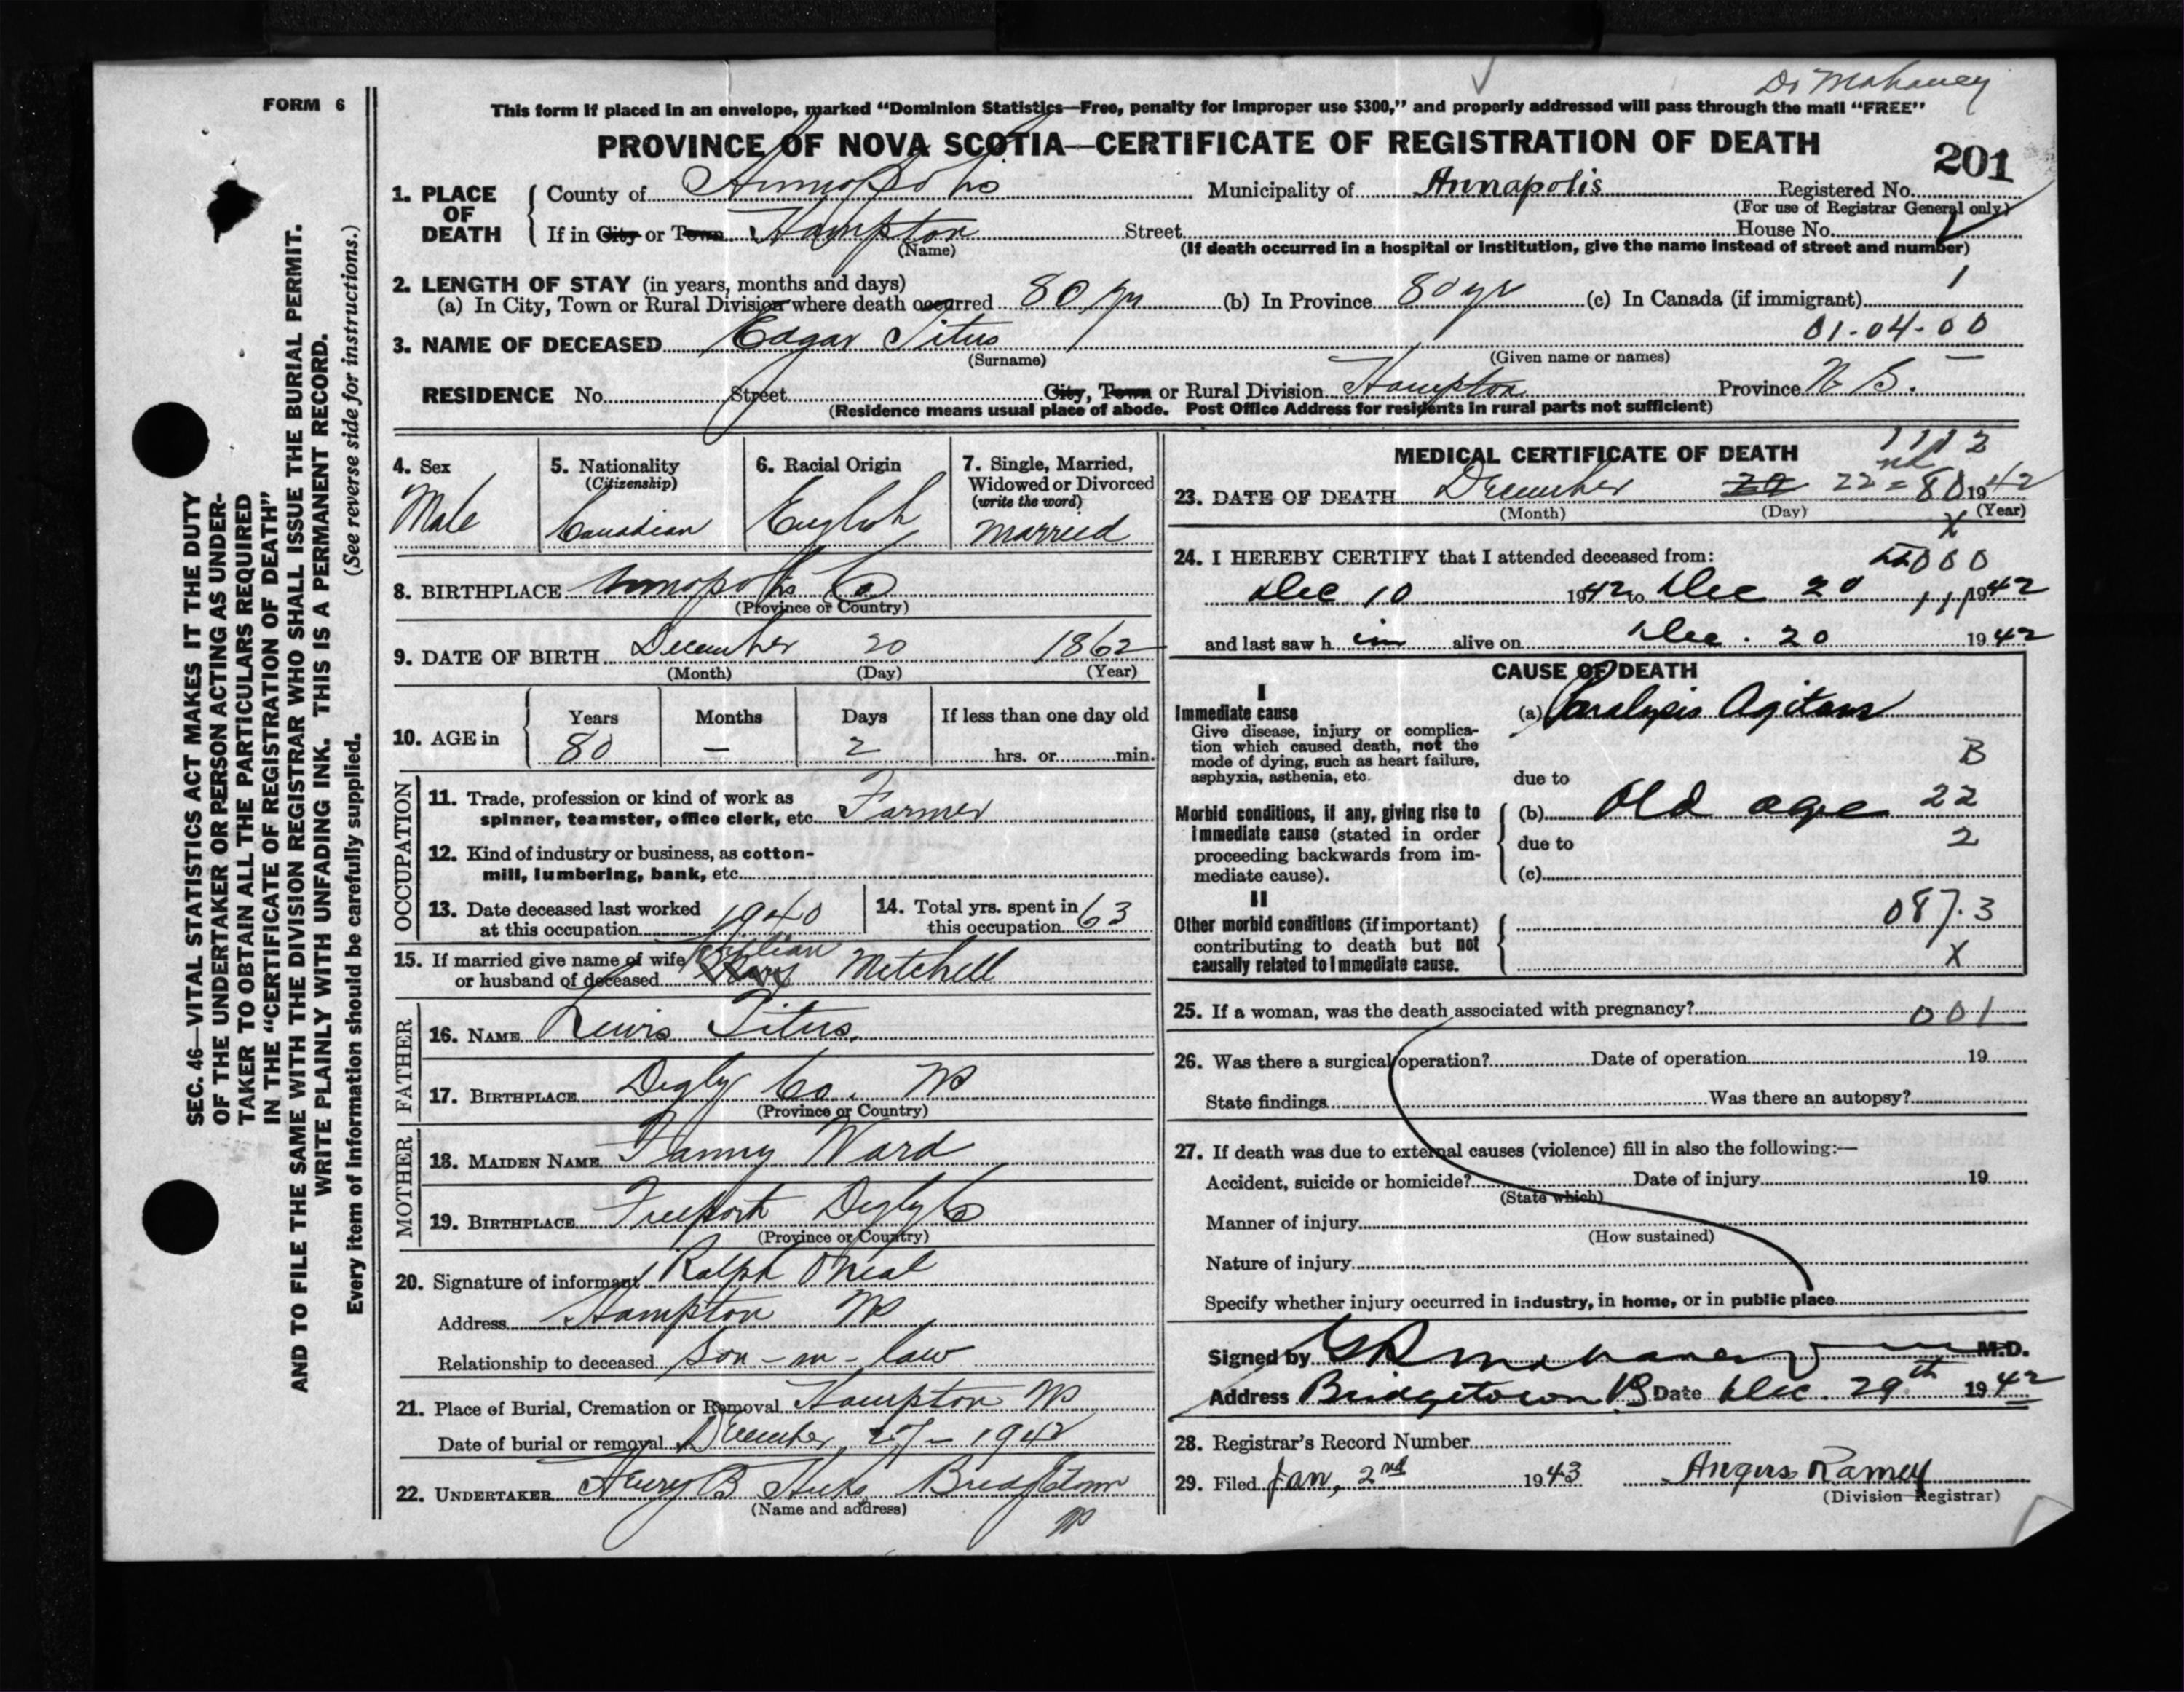 Dr Mahaney
FORM 6
This form if placed in an envelope, marked “Dominion Statistics—Free, penalty for improper use $300,” and properly addressed will pass through the mail “FREE”
PROVINCE OF NOVA SCOTIA—CERTIFICATE OF REGISTRATION OF DEATH
201
1. PLACE OF DEATH
County of Annapolis Municipality of Annapolis Registered No.
(For use of Registrar General only)
If in City or Town Hampton Street House No.
(Name) (If death occurred in a hospital or institution, give the name instead of street and number)
2. LENGTH OF STAY (in years, months and days) 1
(a) In City, Town or Rural Division where death occurred 80 yr (b) In Province 80 yr (c) In Canada (if immigrant)
01-04-00
3. NAME OF DECEASED Edgar Titus
(Surname) (Given name or names)
RESIDENCE No. Street City, Town or Rural Division Hampton Province N S.
(Residence means usual place of abode. Post Office Address for residents in rural parts not sufficient)
4. Sex
Male
5. Nationality
(Citizenship)
Canadian
6. Racial Origin
English
7. Single, Married,
Widowed or Divorced
(write the word)
Married
8. BIRTHPLACE Annapolis Co
(Province or Country)
9. DATE OF BIRTH December 20 1862
(Month) (Day) (Year)
10. AGE in
Years Months Days If less than one day old
80 — 2 hrs. or min.
OCCUPATION
11. Trade, profession or kind of work as
spinner, teamster, office clerk, etc. Farmer
12. Kind of industry or business, as cotton-
mill, lumbering, bank, etc.
13. Date deceased last worked
at this occupation 1940
14. Total yrs. spent in
this occupation 63
15. If married give name of wife
or husband of deceased Mary Mitchell
FATHER
16. NAME Lewis Titus.
17. BIRTHPLACE Digby Co. NS
(Province or Country)
MOTHER
18. MAIDEN NAME Fanny Ward
19. BIRTHPLACE Freeport Digby Co
(Province or Country)
20. Signature of informant Ralph O'Neal
Address Hampton NS
Relationship to deceased Son-in-law
21. Place of Burial, Cremation or Removal Hampton NS
Date of burial or removal December 27 - 1942
22. UNDERTAKER Henry B Hicks Bridgetown
(Name and address) NS
MEDICAL CERTIFICATE OF DEATH
1112
23. DATE OF DEATH December 20 22nd 80 1942
(Month) (Day) (Year)
X
24. I HEREBY CERTIFY that I attended deceased from:
000
Dec 10 1942 to Dec 20 111 1942
and last saw h im alive on Dec. 20 1942
CAUSE OF DEATH
I
Immediate cause (a) Paralysis Agitans
Give disease, injury or complica-
tion which caused death, not the
mode of dying, such as heart failure,
asphyxia, asthenia, etc.
B
due to
Morbid conditions, if any, giving rise to
immediate cause (stated in order
proceeding backwards from im-
mediate cause).
(b) Old age 22
due to 2
(c)
II
Other morbid conditions (if important)
contributing to death but not
causally related to immediate cause.
087.3
X
25. If a woman, was the death associated with pregnancy? 001
26. Was there a surgical operation? Date of operation 19
State findings Was there an autopsy?
27. If death was due to external causes (violence) fill in also the following:—
Accident, suicide or homicide? Date of injury 19
(State which)
Manner of injury
(How sustained)
Nature of injury
Specify whether injury occurred in industry, in home, or in public place
Signed by Mahaney M.D.
Address Bridgetown NS Date Dec. 29th 1942
28. Registrar's Record Number
29. Filed Jan, 2nd 1943 Angus Ramey
(Division Registrar)
SEC. 46—VITAL STATISTICS ACT MAKES IT THE DUTY
OF THE UNDERTAKER OR PERSON ACTING AS UNDER-
TAKER TO OBTAIN ALL THE PARTICULARS REQUIRED
IN THE “CERTIFICATE OF REGISTRATION OF DEATH”
AND TO FILE THE SAME WITH THE DIVISION REGISTRAR WHO SHALL ISSUE THE BURIAL PERMIT.
WRITE PLAINLY WITH UNFADING INK. THIS IS A PERMANENT RECORD.
Every item of information should be carefully supplied. (See reverse side for instructions.)